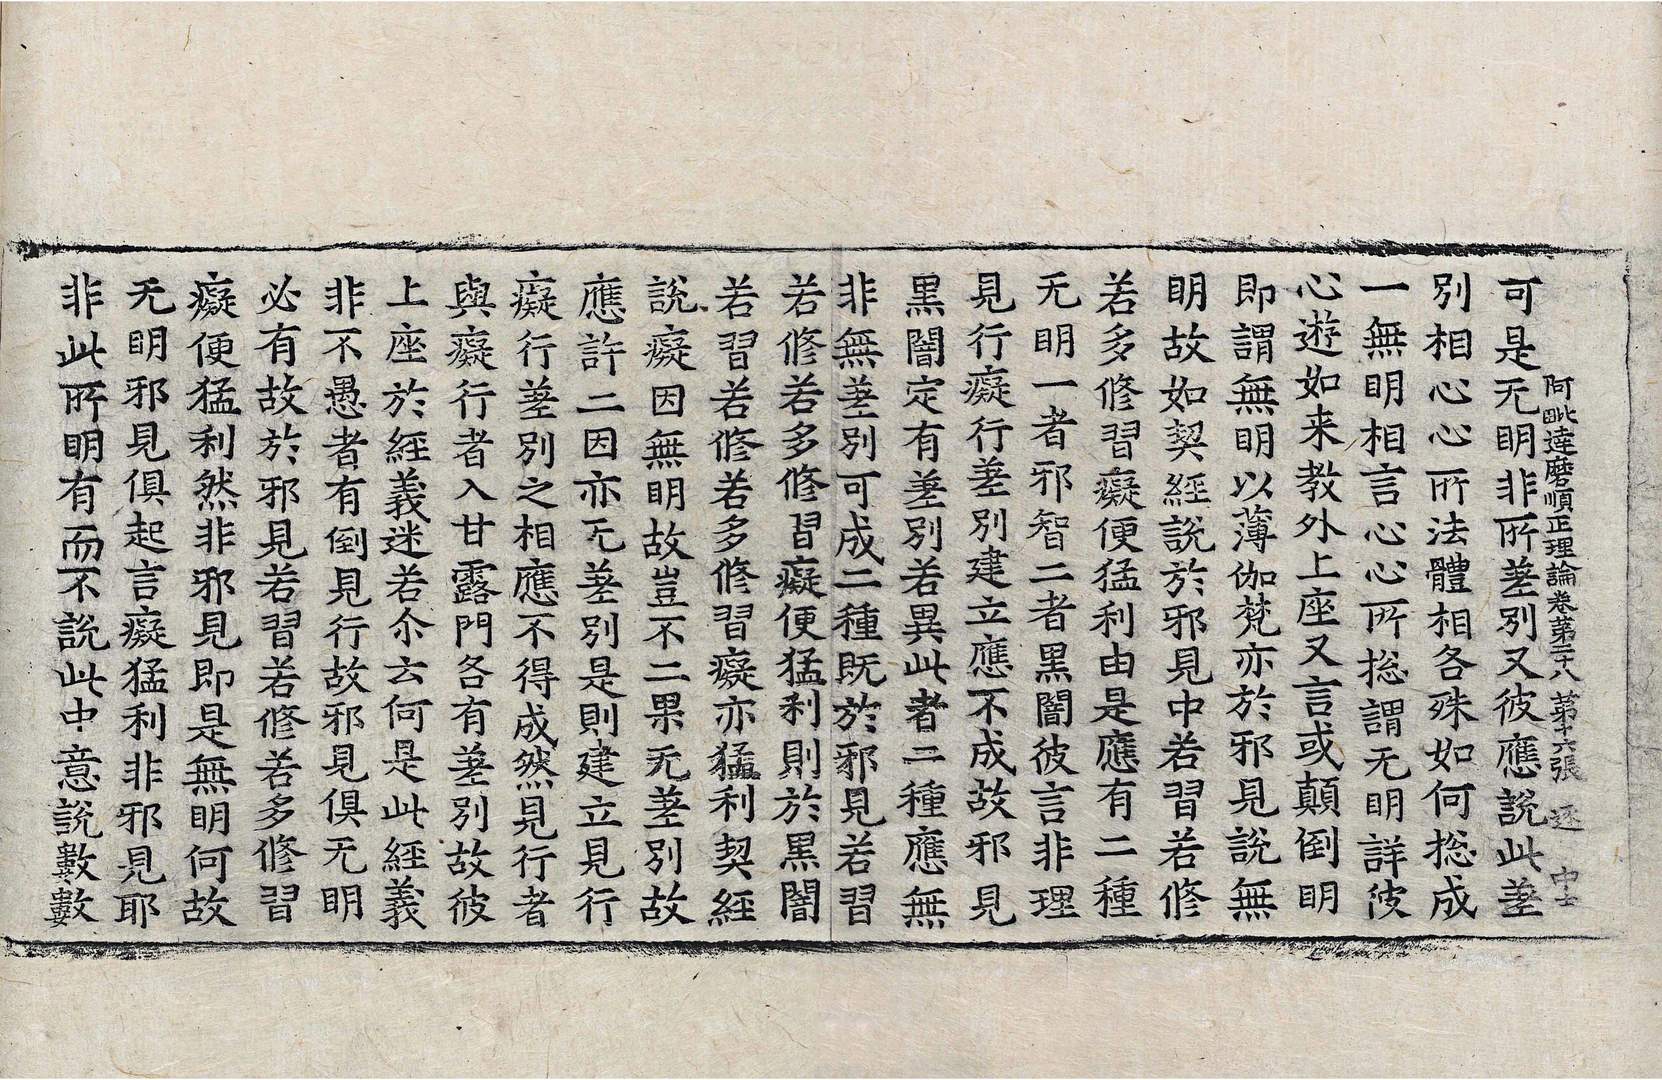 阿毗達磨順正理論卷第二十八 第十六張 逐 中士
可是无明非所差別又彼應說此差
別相心心所法體相各殊如何揔成
一無明相言心心所揔謂无明詳彼
心遊如来教外上座又言或顛倒明
即謂無明以薄伽梵亦於邪見說無
明故如契經說於邪見中若習若修
若多修習癡便猛利由是應有二種
无明一者邪智二者黒闇彼言非理
見行癡行差別建立應不成故邪見
黒闇定有差別若異此者二種應無
非無差別可成二種既於邪見若習
若修若多修習癡便猛利則於黒闇
若習若修若多修習癡亦猛利契經
說癡因無明故豈不二果无差別故
應許二因亦无差別是則建立見行
癡行差別之相應不得成然見行者
與癡行者入甘露門各有差別故彼
上座於經義迷若尒云何是此經義
非不愚者有倒見行故邪見俱无明
必有故於邪見若習若修若多修習
癡便猛利然非邪見即是無明何故
无明邪見俱起言癡猛利非邪見耶
非此所明有而不說此中意說數數